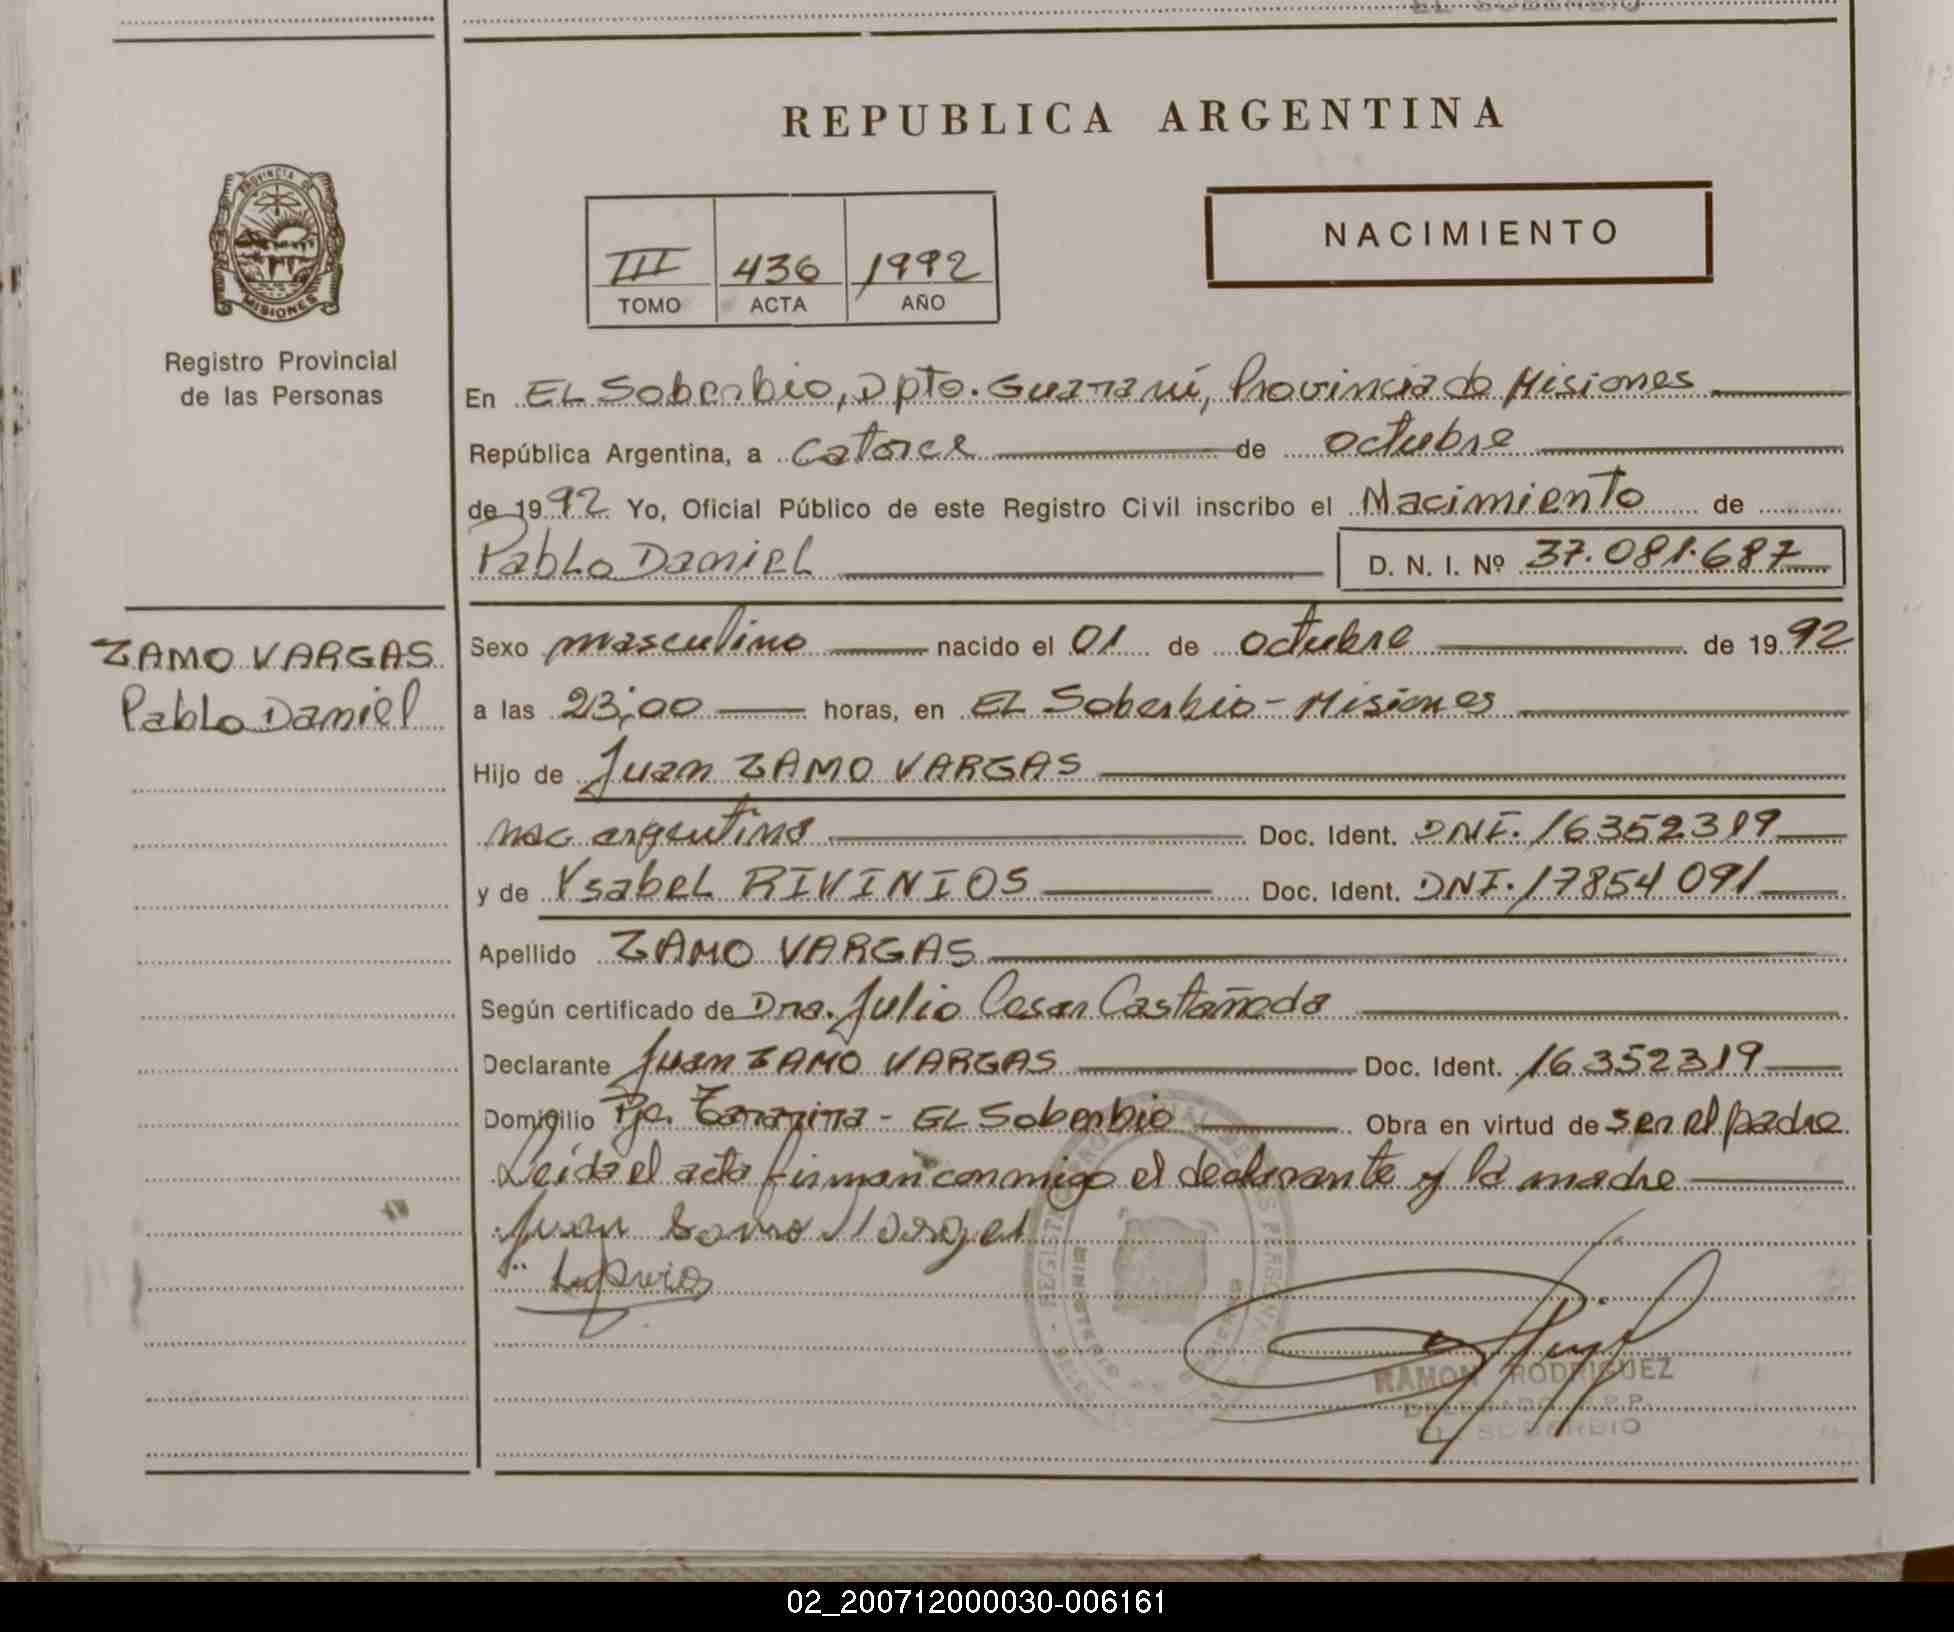 REPUBLICA ARGENTINA
PROVINCIA DE
MISIONES
Registro Provincial
de las Personas
III 436 1992
TOMO ACTA AÑO
NACIMIENTO
En EL Soberbio, Dpto. Guaraní, Provincia de Misiones
República Argentina, a catorce de octubre
de 1992 Yo, Oficial Público de este Registro Civil inscribo el Nacimiento de
Pablo Daniel D. N. I. Nº 37.081.687
ZAMO VARGAS
Pablo Daniel
Sexo masculino nacido el 01 de octubre de 1992
a las 23,00 horas, en EL Soberbio - Misiones
Hijo de Juan ZAMO VARGAS
nac argentina Doc. Ident. DNI. 16352319
y de Ysabel RIVINIOS Doc. Ident. DNI. 17854091
Apellido ZAMO VARGAS
Según certificado de Dra. Julio Cesar Castañeda
Declarante Juan ZAMO VARGAS Doc. Ident. 16352319
Domicilio Pje. - EL Soberbio Obra en virtud de ser el padre
Leida el acta firman conmigo el declarante y la madre
Juan
RAMON RODRIGUEZ
EL SOBERBIO
02_200712000030-006161